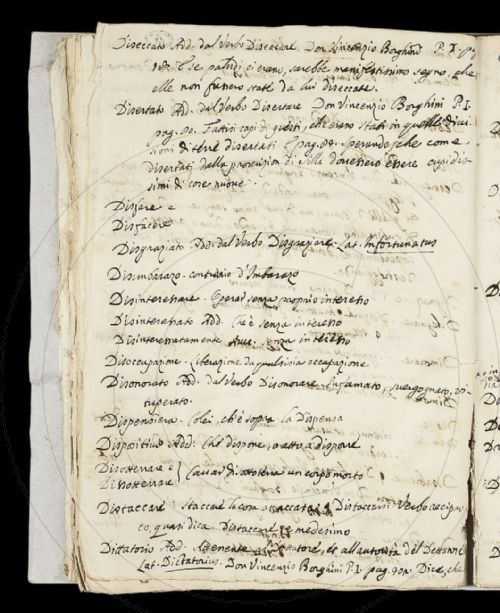 Diseccato Add. dal Verbo Diseccare. Don Vincenzio Borghini P. I.
E se paludi ci erano, sarebbe manifestissimo segno, che
elle non fussero state da lui diseccate.
Disertato Ad. dal Verbo Disertare Don Vincenzio Borghini P. I.
pag. Fattisi capi di questi, che erano stati in quelle
disertati sperando, che come
disertati dalla di Silla dovessero essere cupidis
simi di cose nuove.
Disfare e
Disfacere
Disgraziato Add. dal Verbo Disgraziare. Lat. Infortunatus
Disimbarazo. contrario d'Imbarazo
Disinteressare. Operar senza proprio interesso
Disinteressato Add. Ch'è senza interesso
Disinteressatamente Avv. senza interesso
Disoccupazione. Liberazione da qualsisia occupazione
Disonorato Add. dal Verbo Disonorare. infamato, svergognato, vi
tuperato.
Dispensiera. Colei, ch'è sopra la Dispensa
Dispositivo Add. Che dispone, o atto a disporre
Disotterrare e
Disotterrare Cavar di sottoterra un corpo morto
Distaccare staccar la cosa attaccata Distaccarsi Verbo recipro
co, quasi dica. Distaccare se medesimo
Dittatorio Add. Attenente a Dittatore, et all'autorità del Dettatore
Lat. Dictatorius. Don Vincenzio Borghini P. I. pag. Dice, che